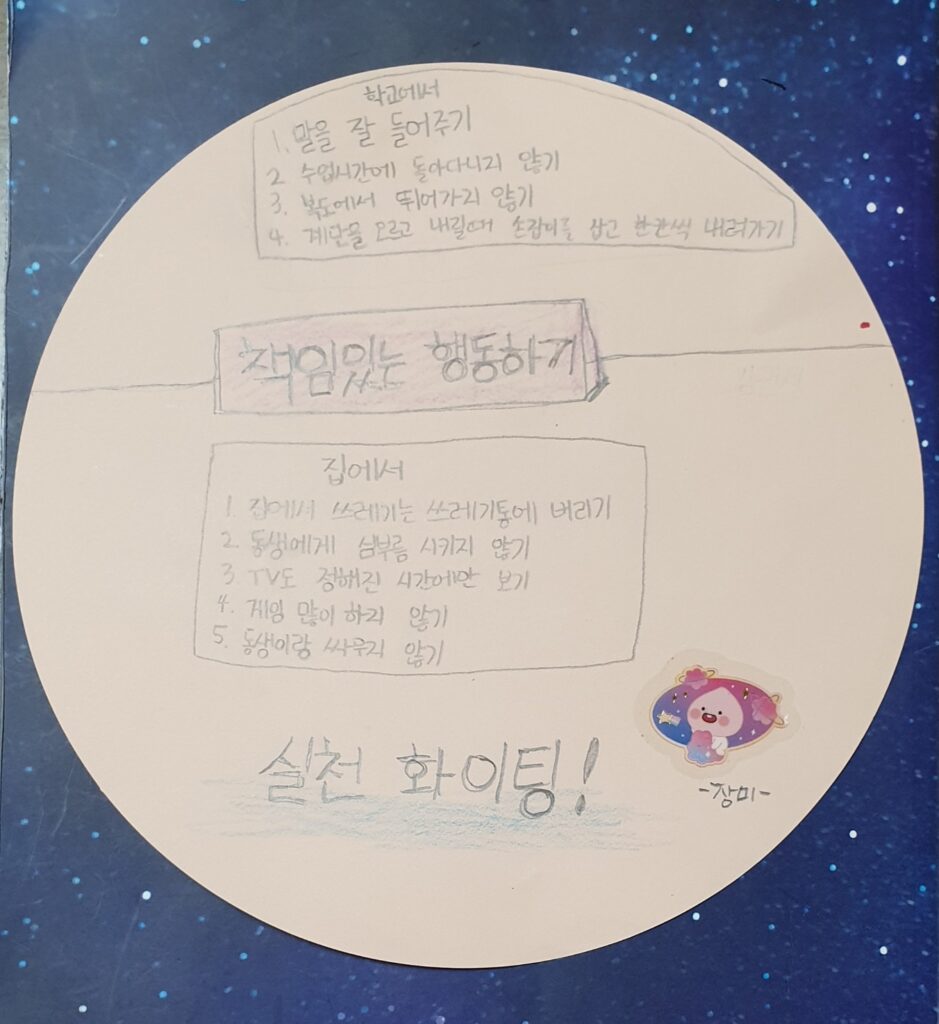 학교에서
1. 말을 잘 들어주기
2. 수업시간에 돌아다니지 않기
3. 복도에서 뛰어가지 않기
4. 계단을 오르고 내릴때 손잡이를 잡고 한칸씩 내려가기
책임있는 행동하기
집에서
1. 집에서 쓰레기는 쓰레기통에 버리기
2. 동생에게 심부름 시키지 않기
3. TV도 정해진 시간에만 보기
4. 게임 많이 하지 않기
5. 동생이랑 싸우지 않기
실천 화이팅!
-장미-